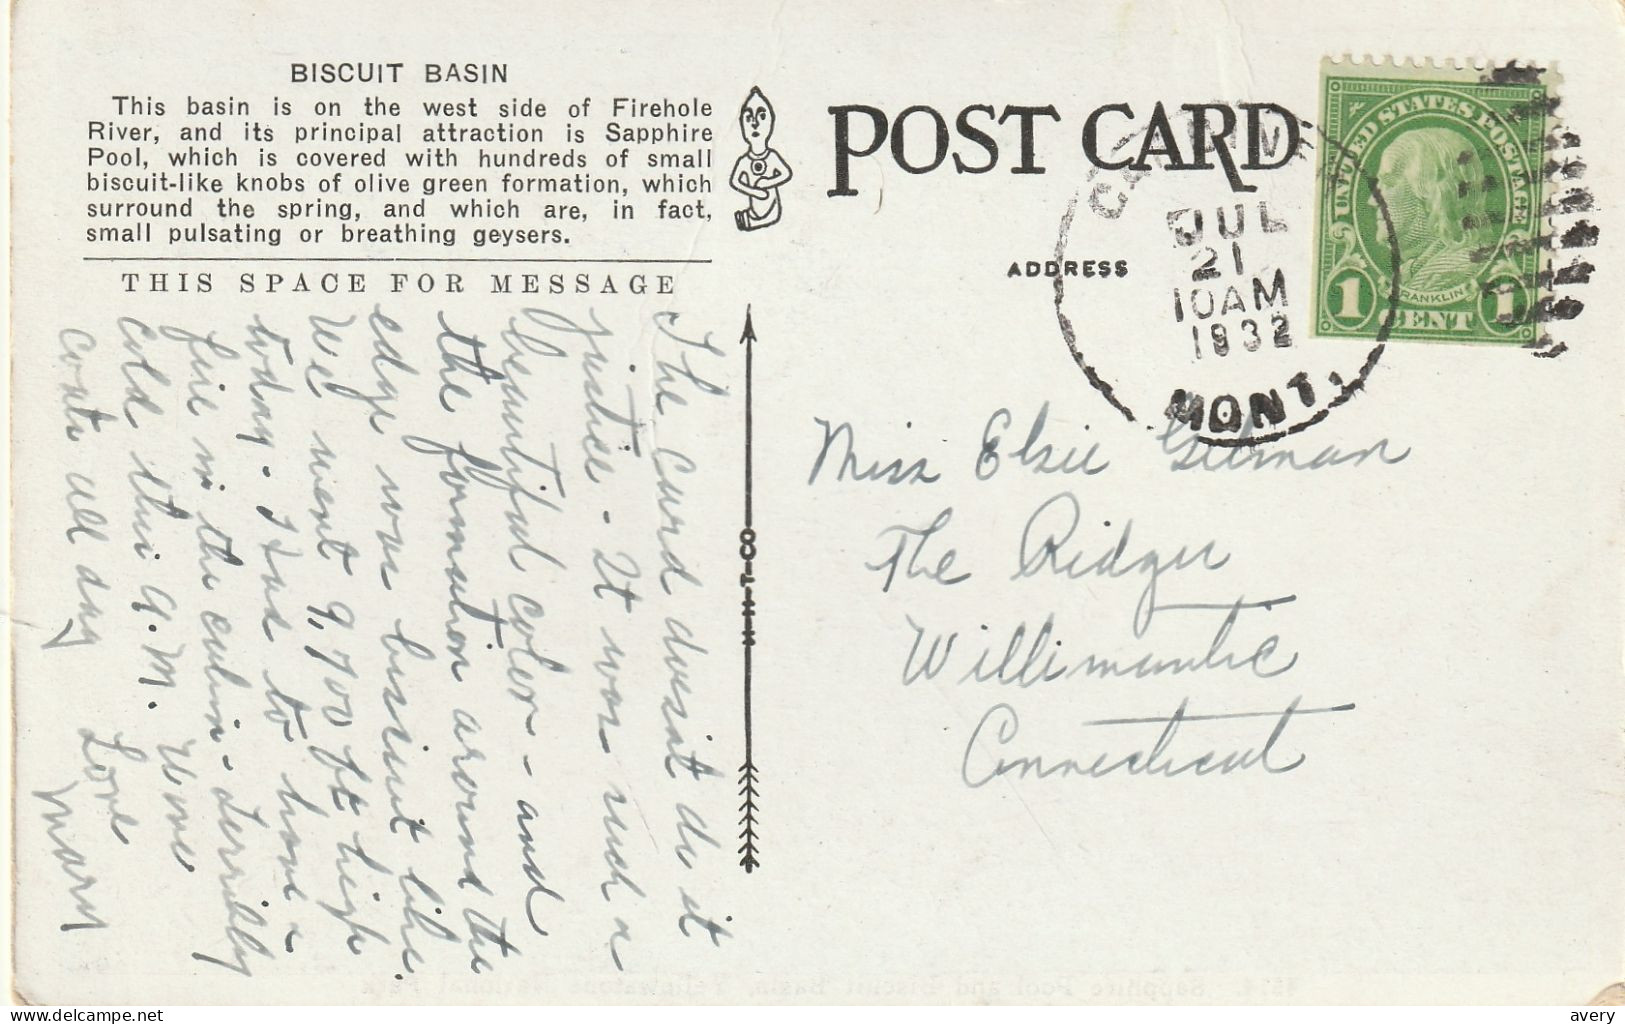 BISCUIT BASIN
This basin is on the west side of Firehole
River, and its principal attraction is Sapphire
Pool, which is covered with hundreds of small
biscuit-like knobs of olive green formation, which
surround the spring, and which are, in fact,
small pulsating or breathing geysers.
THIS SPACE FOR MESSAGE
The card doesn't do it
justice - It was such a
beautiful color - and
the formation around the
edge was biscuit like.
We went 9,700 ft high
today. I had to have a
fire in the cabin - terribly
cold this A.M. Wore
coats all day
Love
Mary
H-H-T-CO
POST CARD
ADDRESS
JUL
21
10AM
1932
MONT.
UNITED STATES POSTAGE
FRANKLIN
1 CENT 1
Miss Elsie
The Ridges
Willimantic
Connecticut
Sapphire Pool and Biscuit Basin, Yellowstone National Park
delcampe.net
avery